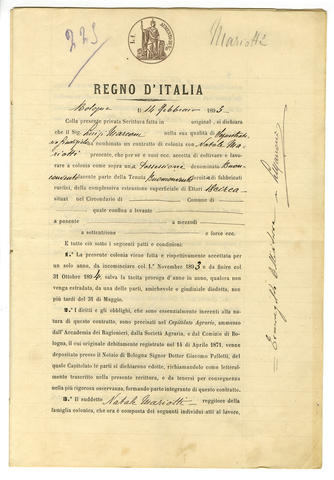 223
Mariotti
REGNO D'ITALIA
Bologna li 14 Febbraio 1893.
Colla presente privata Scrittura fatta in original, si dichiara
che il Sig. Luigi Marconi nella sua qualità di
ha combinato un contratto di colonia con Natale Ma-
riotti presente, che per se e suoi ecc. accetta di coltivare e lavo-
rare a colonia come sopra una Possessione, denominata
facente parte della Tenuta di fabbricati
rurali, della complessiva estensione superficiale di Ettari
situat nel Circondario di Comune di
quale confina a levante
a ponente a mezzodì
a settentrione e forse ecc.
E tutto ciò sotto i seguenti patti e condizioni:
1.° La presente colonia viene fatta e rispettivamente accettata per
un solo anno, da incominciare col 1.° Novembre 1893 e da finire col
31 Ottobre 1894, salva la tacita proroga d'anno in anno, qualora non
venga estradata, da una delle parti, amichevole o giudiziale disdetta, non
più tardi del 31 di Maggio.
2.° I diritti e gli obblighi, che sono essenzialmente inerenti alla
natura di questo contratto, sono precisati nel Capitolato Agrario, ammesso
dall'Accademia dei Ragionieri, dalla Società Agraria, e dal Comizio di Bo-
logna, il cui originale debitamente registrato nel 14 di Aprile 1871, venne
depositato presso il Notaio di Bologna Signor Dottor Giacomo Palletti, del
quale Capitolato le parti si dichiarano edotte, richiamandolo come letteral-
mente trascritto nella presente scritura, e da tenersi per conseguenza
nella più rigorosa osservanza, formando parte integrante di questo contratto.
3.° Il suddetto Natale Mariotti reggitore della
famiglia colonica, che ora è composta dei seguenti individui atti al lavoro,